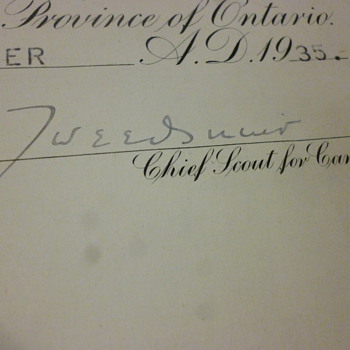 Province of Ontario.
ER A.D. 1935.
Tweedsmuir
Chief Scout for Can